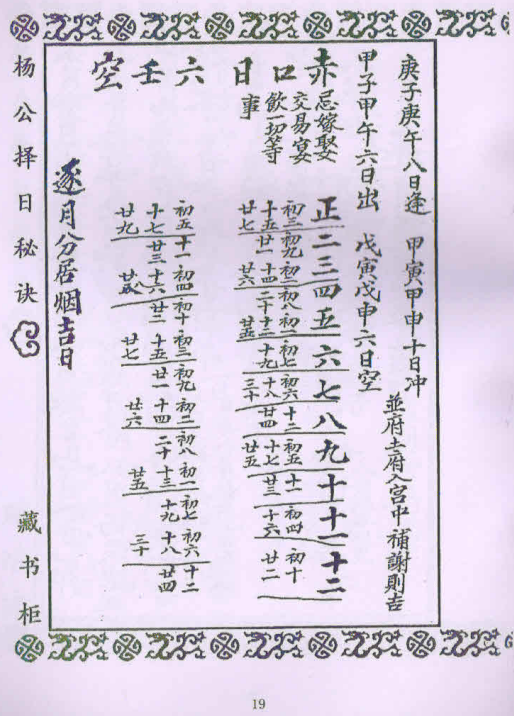 庚子庚午八日逢 甲寅甲申十日冲
並府土府入宮中補謝則吉
甲子甲午六日出 戊寅戊申六日空
赤口日
忌嫁娶
交易宴
飲一切等
事
正二三四五六七八九十十一十二
初三 初九 初二 初八 初一 初七 初六 十二 初五 十一 初四 初十
十五 廿一 十四 二十 十三 十九 十八 廿四 十七 廿三 十六 廿二
廿七 廿六 廿五 三十 廿五
六壬空
初五 十一 初四 初十 初三 初九 初二 初八 初一 初七 初六 十二
十七 廿三 十六 廿二 十五 廿一 十四 二十 十三 十九 十八 廿四
廿九 廿八 廿七 廿六 廿五 三十
逐月分居烟吉日
杨公择日秘诀
藏书柜
19